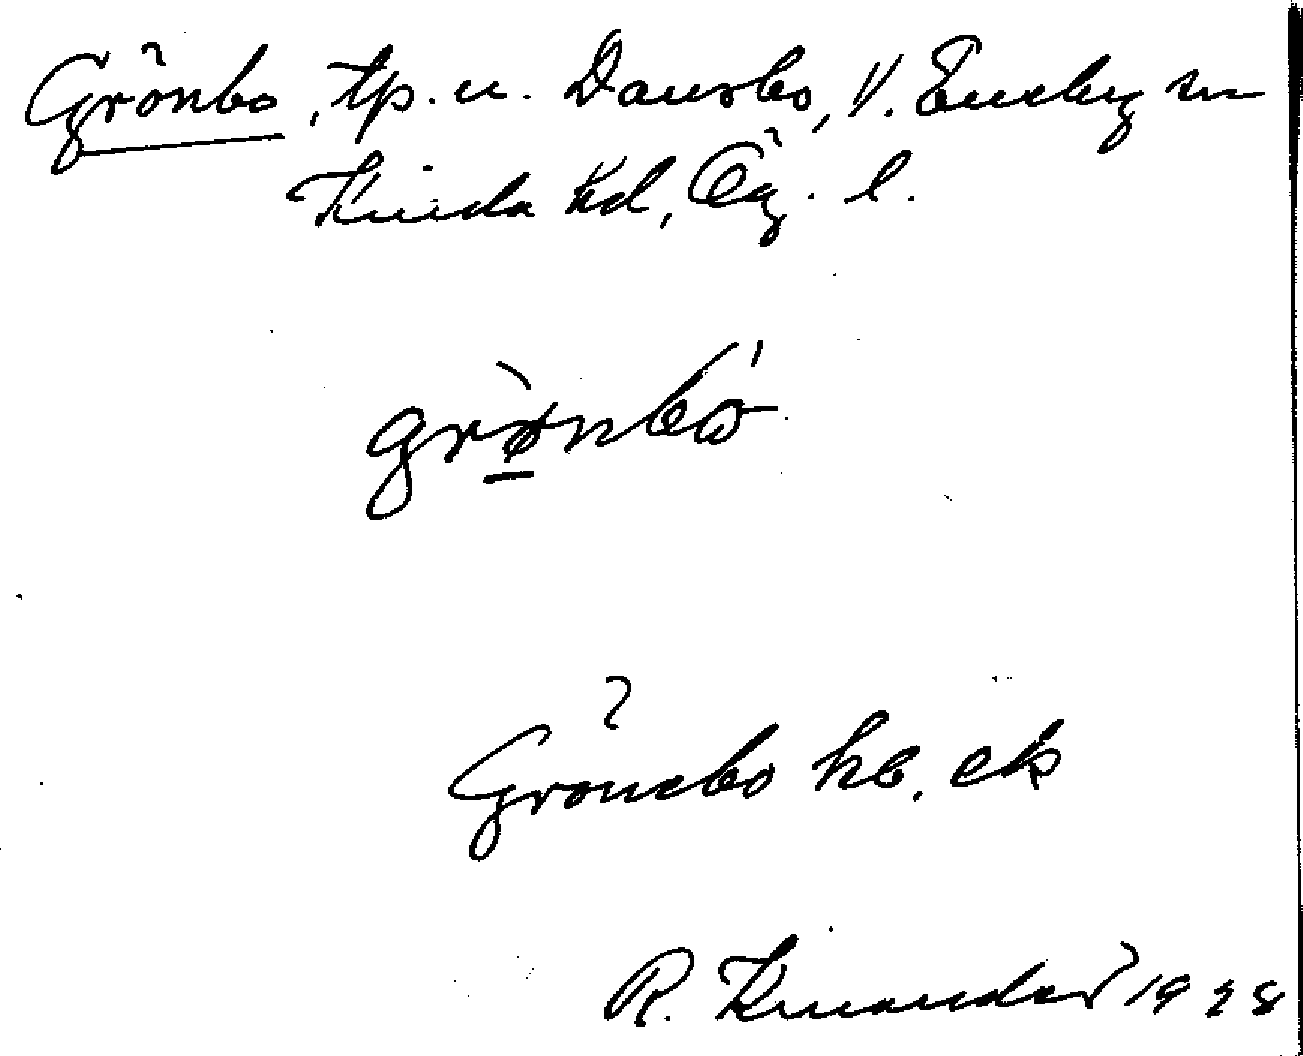 Grönbo, tp. u. Dansbo, V. Eneby sn
Kinda hd, Ög. l.
grø̱̀nbó
Grönebo hb. ek
R. Kinander 1928